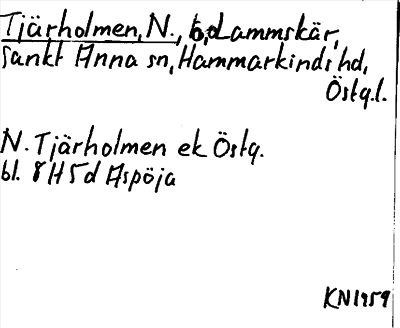 Tjärholmen, N., ö, Lammskär,
Sankt Anna sn, Hammarkinds hd,
Östg.l.
N. Tjärholmen ek Östg.
bl. 8H5d Aspöja
KN1959